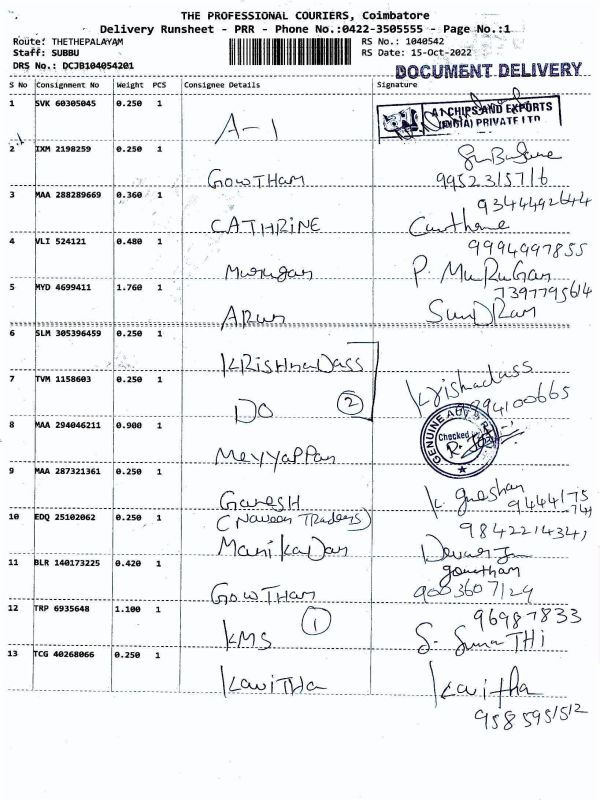 THE PROFESSIONAL COURIERS, Coimbatore
Delivery Runsheet - PRR - Phone No.:0422-3505555 - Page No.:1
Route: THETHEPALAYAM RS No.: 1040542
Staff: SUBBU RS Date: 15-Oct-2022
DRS No.: DCJB104054201 DOCUMENT DELIVERY
S No Consignment No Weight PCS Consignee Details Signature
1 SVK 60305045 0.250 1
A-1 CHIPS AND EXPORTS
(INDIA) PRIVATE LTD
A-1
2 IXM 2198259 0.250 1
GOWTHAM 9952315716
3 MAA 288289669 0.360 1 9344492644
CATHRINE
4 VLI 524121 0.480 1 9994997855
Murugan P. MuRuGan
5 MYD 4699411 1.760 1 7397795614
ARUN SunDRam
6 SLM 305396459 0.250 1
KRISHNADASS
7 TVM 1158603 0.250 1 Krishadass
DO 2 994100665
8 MAA 294046211 0.900 1
Checked
MEYYAPPAN
9 MAA 287321361 0.250 1
GANESH
(Naveen Traders)
10 EDQ 25102062 0.250 1 9842214341
Manikadan
11 BLR 140173225 0.420 1 gowtham
GOWTHAM 9003607129
12 TRP 6935648 1.100 1 96987833
KMS 1
13 TCG 40268066 0.250 1
KAVITHA Kavitha
9585951512